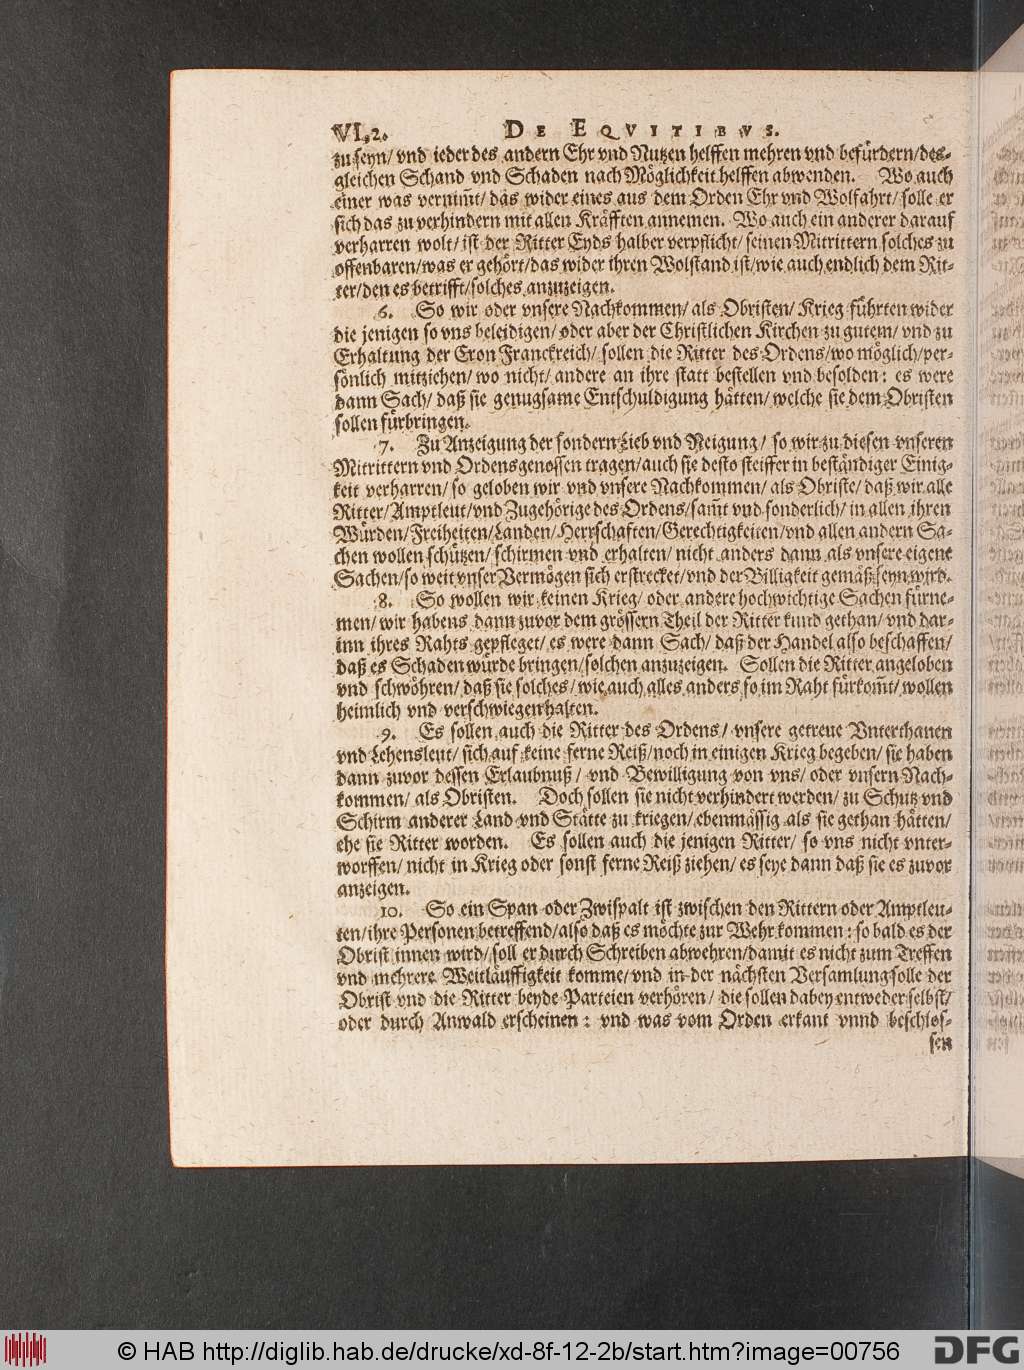 VI,2. DE EQVITIBVS.
zu seyn/ vnd ieder des andern Ehr vnd Nutzen helffen mehren vnd befürdern/des-
gleichen Schand vnd Schaden nach Möglichkeit helffen abwenden. Wo auch
einer was vernim̄t/ das wider eines aus dem Orden Ehr vnd Wolfahrt/ solle er
sich das zu verhindern mit allen Kräfften annemen. Wo auch ein anderer darauf
verharren wolt/ ist der Ritter Eyds halber verpflicht/ seinen Mitrittern solches zu
offenbaren/was er gehört/das wider ihren Wolstand ist/wie auch endlich dem Rit-
ter/den es betrifft/solches anzuzeigen.
6. So wir oder vnsere Nachkommen/ als Obristen/ Krieg führten wider
die jenigen so vns beleidigen/ oder aber der Christlichen Kirchen zu gutem/ vnd zu
Erhaltung der Cron Franckreich/ sollen die Ritter des Ordens/wo möglich/per-
sönlich mitziehen/ wo nicht/ andere an ihre statt bestellen vnd besolden: es were
dann Sach/ daß sie genugsame Entschuldigung hätten/ welche sie dem Obristen
sollen fürbringen.
7. Zu Anzeigung der sondern Lieb vnd Neigung/ so wir zu diesen vnseren
Mitrittern vnd Ordensgenossen tragen/auch sie desto steiffer in beständiger Einig-
keit verharren/ so geloben wir vnd vnsere Nachkommen/ als Obriste/ daß wir alle
Ritter/Amptleut/vnd Zugehörige des Ordens/sam̄t vnd sonderlich/ in allen ihren
Würden/Freiheiten/Landen/Herrschaften/Gerechtigkeiten/vnd allen andern Sa-
chen wollen schützen/ schirmen vnd erhalten/ nicht anders dann als vnsere eigene
Sachen/so weit vnser Vermögen sich erstrecket/vnd der Billigkeit gemäß seyn wird.
8. So wollen wir keinen Krieg/ oder andere hochwichtige Sachen fürne-
men/ wir habens dann zuvor dem grössern Theil der Ritter kund gethan/ vnd dar-
inn ihres Rahts gepfleget/ es were dann Sach/ daß der Handel also beschaffen/
daß es Schaden würde bringen/solchen anzuzeigen. Sollen die Ritter angeloben
vnd schwöhren/ daß sie solches/ wie auch alles anders so im Raht fürkom̄t/ wollen
heimlich vnd verschwiegen halten.
9. Es sollen auch die Ritter des Ordens/ vnsere getreue Vnterthanen
vnd Lehensleut/ sich auf keine ferne Reiß/noch in einigen Krieg begeben/ sie haben
dann zuvor dessen Erlaubnuß/ vnd Bewilligung von vns/ oder vnsern Nach-
kommen/ als Obristen. Doch sollen sie nicht verhindert werden/ zu Schutz vnd
Schirm anderer Land vnd Stätte zu kriegen/ ebenmässig als sie gethan hätten/
ehe sie Ritter worden. Es sollen auch die jenigen Ritter/ so vns nicht vnter-
worffen/ nicht in Krieg oder sonst ferne Reiß ziehen/ es seye dann daß sie es zuvor
anzeigen.
10. So ein Span oder Zwispalt ist zwischen den Rittern oder Amptleu-
ten/ihre Personen betreffend/also daß es möchte zur Wehr kommen: so bald es der
Obrist innen wird/ soll er durch Schreiben abwehren/damit es nicht zum Treffen
vnd mehrere Weitläuffigkeit komme/ vnd in der nächsten Versamlung solle der
Obrist vnd die Ritter beyde Parteien verhören/ die sollen dabey entweder selbst/
oder durch Anwald erscheinen: vnd was vom Orden erkant vnnd beschlos-
sen
© HAB http://diglib.hab.de/drucke/xd-8f-12-2b/start.htm?image=00756
DFG